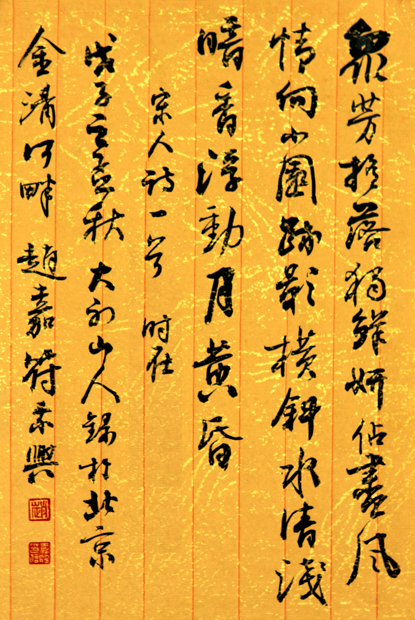 众芳摇落獨鲜妍佔盡风
情向小園疏影橫斜水清淺
暗香浮動月黄昏
宋人詩一首 时在
戊子之孟秋大利山人錦於北京
金溝河畔趙嘉符乘興